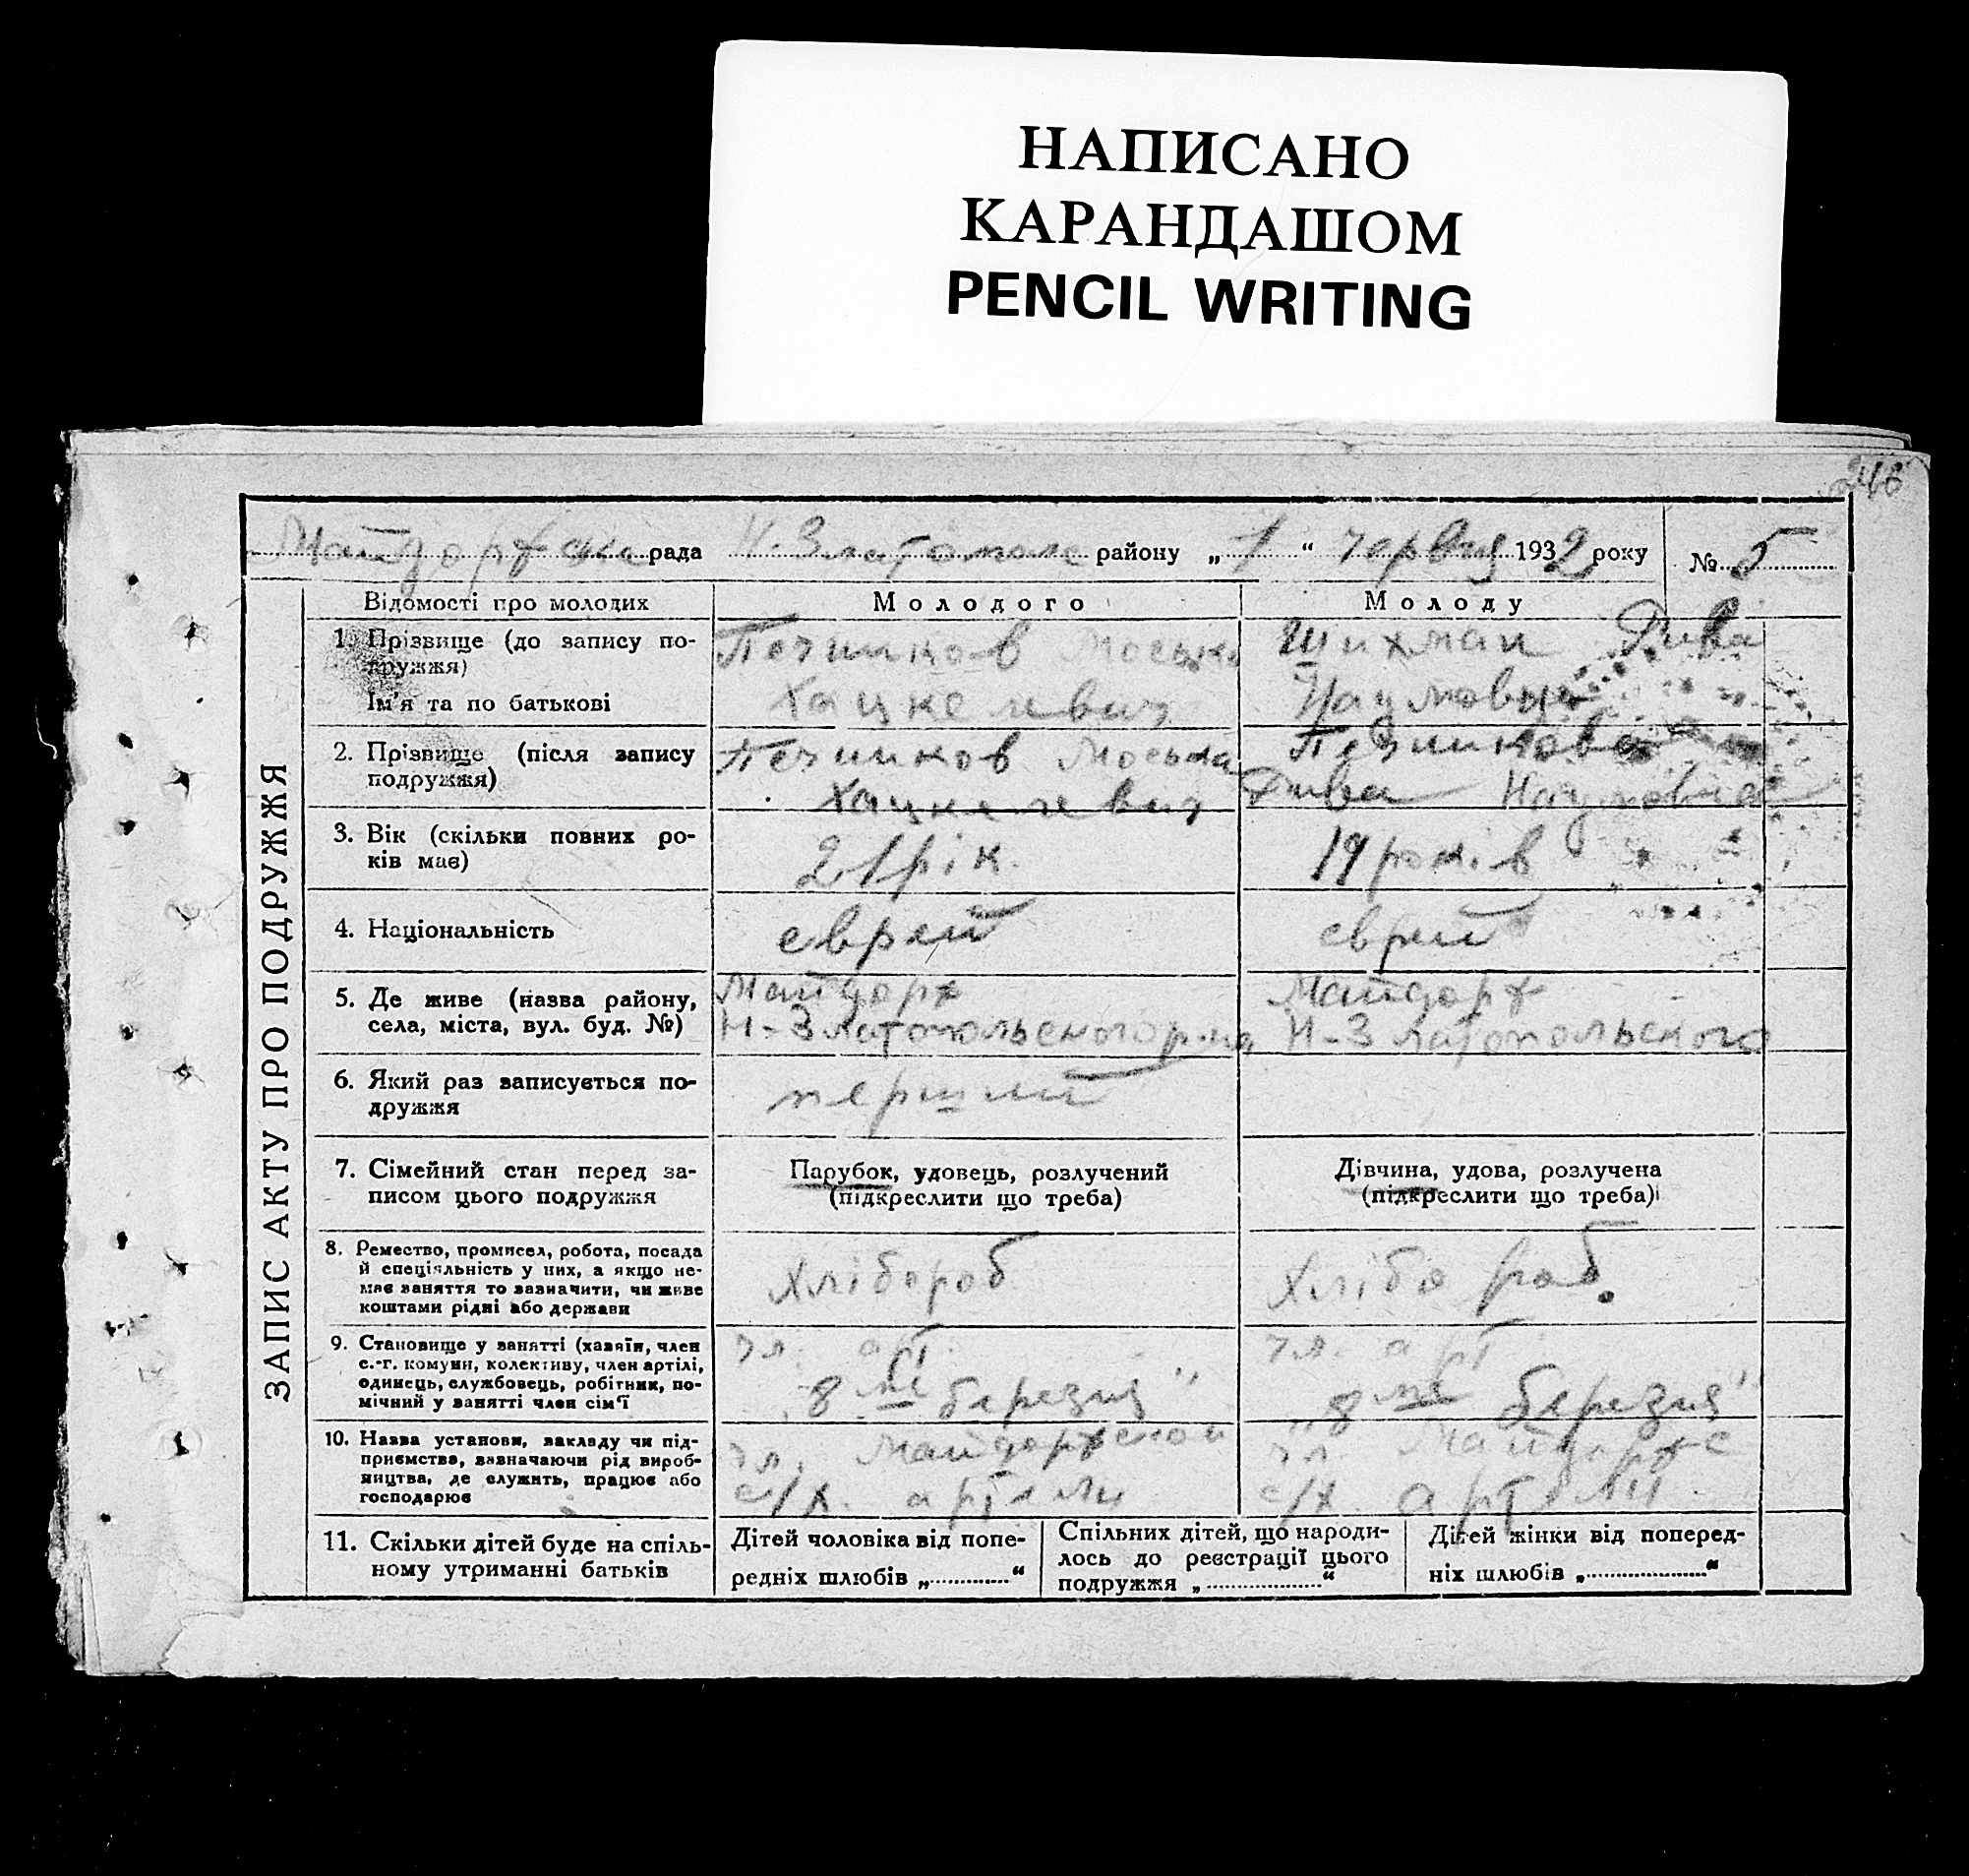 НАПИСАНО
КАРАНДАШОМ
PENCIL WRITING
ЗАПИС АКТУ ПРО ПОДРУЖЖЯ
рада Н. Златополе району „ 1 “ червня 1932 року № 5
Відомості про молодих Молодого Молоду
1. Прізвище (до запису по-
дружжя)
Ім'я та по батькові
Печников Моська
Хацкелевич
Шихман Рива
Наумовна
2. Прізвище (після запису
подружжя)
Печников Моська
Хацкелевич
Печникова
Рива Наумовна
3. Вік (скільки повних ро-
ків має)
21 рік.
19 років
4. Національність
еврей
еврей
5. Де живе (назва району,
села, міста, вул. буд. №)
Майдорф
Н-Златопольського р-на
Майдорф
Н-Златопольського
6. Який раз записується по-
дружжя
перший
7. Сімейний стан перед за-
писом цього подружжя
Парубок, удовець, розлучений
(підкреслити що треба)
Дівчина, удова, розлучена
(підкреслити що треба)
8. Ремество, промисел, робота, посада
й спеціяльність у них, а якщо не-
має заняття то зазначити, чи живе
коштами рідні або держави
Хлібороб
Хлібороб.
9. Становище у занятті (хазяїн, член
с.-г. комуни, колективу, член артілі,
одинець, службовець, робітник, по-
мічний у занятті член сім'ї
чл. арт.
„8 ме березня"
чл. арт
„8 ме березня"
10. Назва установи, закладу чи під-
приємства, зазначаючи рід вироб-
ництва, де служить, працює або
господарює
чл. Майдорфской
с/х. артели
чл. Майдорфс
с/х. артели
11. Скільки дітей буде на спіль-
ному утриманні батьків
Дітей чоловіка від попе-
редніх шлюбів „ “
Спільних дітей, що народи-
лось до реєстрації цього
подружжя „ “
Дітей жінки від поперед-
ніх шлюбів „ “